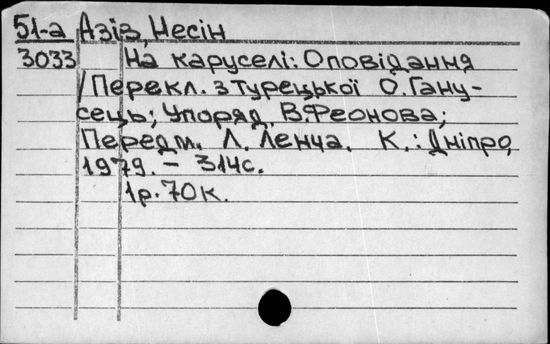 51-а Азіз, Несін
3033 На каруселі: Оповідання
/Перекл. з турецької О. Гану-
сець; Упоряд. В. Феонова;
Передм. Л. Ленча. К.: Дніпро,
1979. – 314с.
1р. 70к.